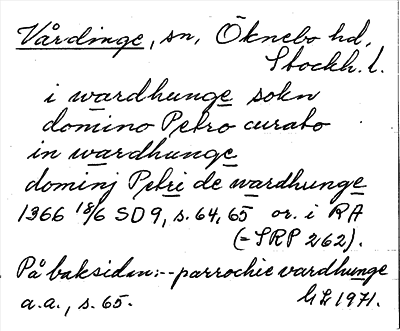 Vårdinge, sn, Öknebo hd,
Stockh. l.
i wardhunge sokn
domino Petro curato
in wardhunge
dominj Petri de wardhunge
1366 18/6 SD 9, s. 64, 65 or. i RA
(= SRP 262).
På baksidan:-- parrochie vardhunge
a.a., s. 65. 1971.